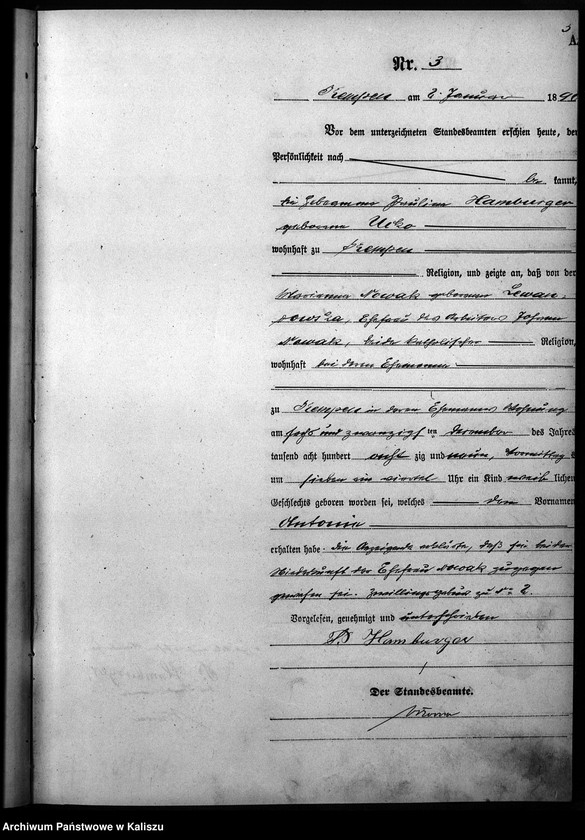 3
A.
Nr. 3
Kempen am 2. Januar 1890
Vor dem unterzeichneten Standesbeamten erschien heute, der
Persönlichkeit nach
be kannt,
die Hebamme Pauline Hamburger
geborene Ucko
wohnhaft zu Kempen
Religion, und zeigte an, daß von der
Marianna Nowak geborenen Lewan-
dowska, Ehefrau des Arbeiters Johann
Nowak, beide katholischer Religion,
wohnhaft bei deren Ehemann
zu Kempen in deren Ehemannes Wohnung
am sechs und zwanzigsten Dezember des Jahres
tausend acht hundert acht zig und neun, Vormittag
um sieben ein viertel Uhr ein Kind weib lichen
Geschlechts geboren worden sei, welches den Vornamen
Antonie
erhalten habe. die Anzeigende erklärte, daß sie bei der
Niederkunft der Ehefrau Nowak zugegen
gewesen sei. Zwillingsgeburt zu No 2.
Vorgelesen, genehmigt und unterschrieben
P Hamburger
Der Standesbeamte.
Archiwum Państwowe w Kaliszu